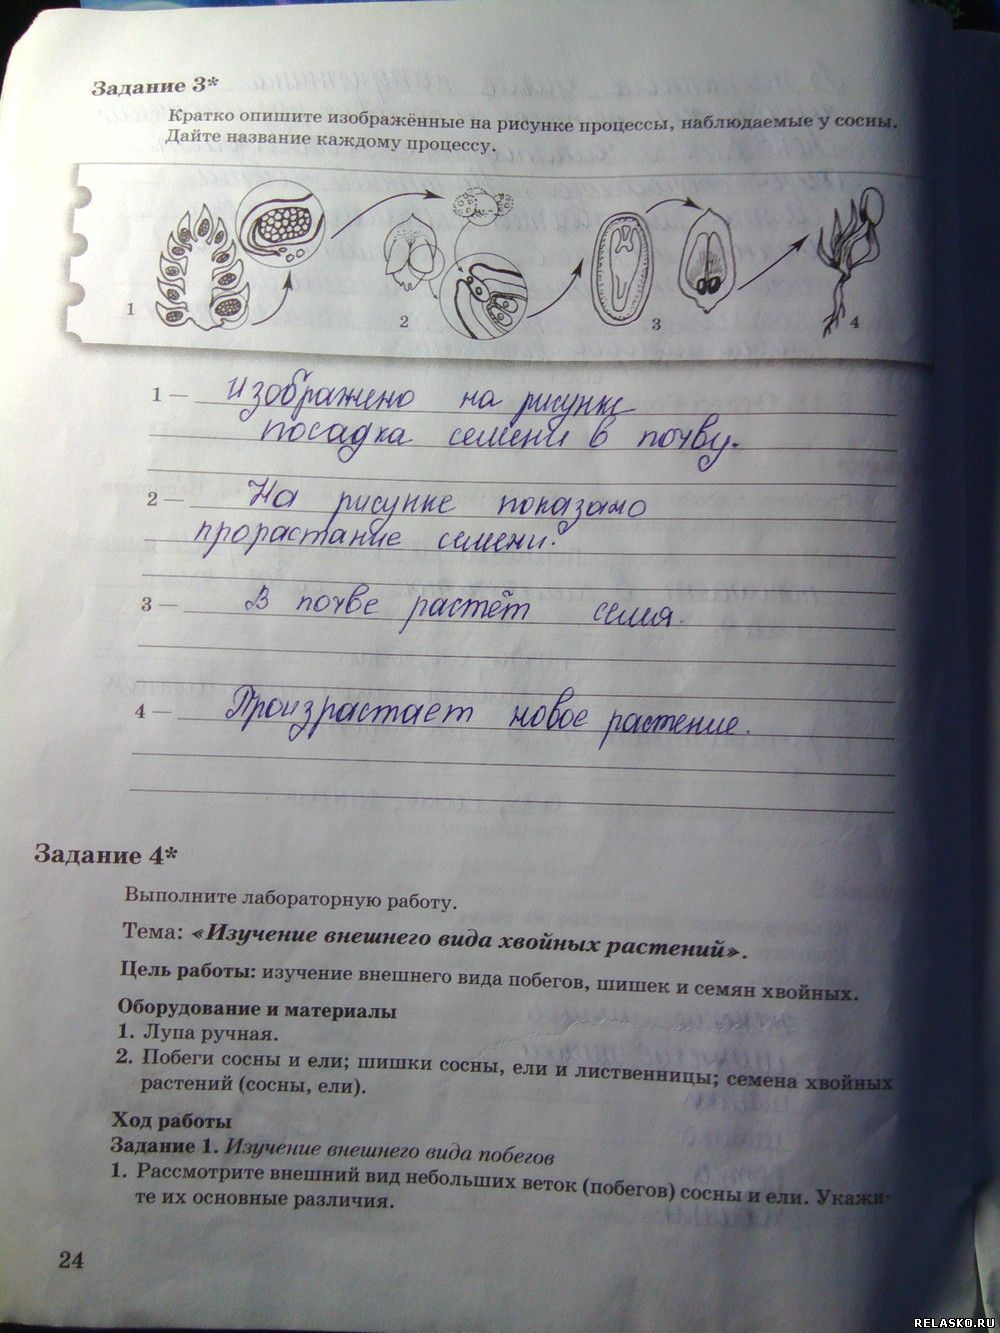 Задание 3*
Кратко опишите изображённые на рисунке процессы, наблюдаемые у сосны.
Дайте название каждому процессу.
1
2
3
4
1 — изображено на рисунке
посадка семени в почву.
2 — На рисунке показано
прорастание семени.
3 — В почве растёт семя.
4 — Произрастает новое растение.
Задание 4*
Выполните лабораторную работу.
Тема: «Изучение внешнего вида хвойных растений».
Цель работы: изучение внешнего вида побегов, шишек и семян хвойных.
Оборудование и материалы
1. Лупа ручная.
2. Побеги сосны и ели; шишки сосны, ели и лиственницы; семена хвойных
растений (сосны, ели).
Ход работы
Задание 1. Изучение внешнего вида побегов
1. Рассмотрите внешний вид небольших веток (побегов) сосны и ели. Укажи-
те их основные различия.
24
RELASKO.RU